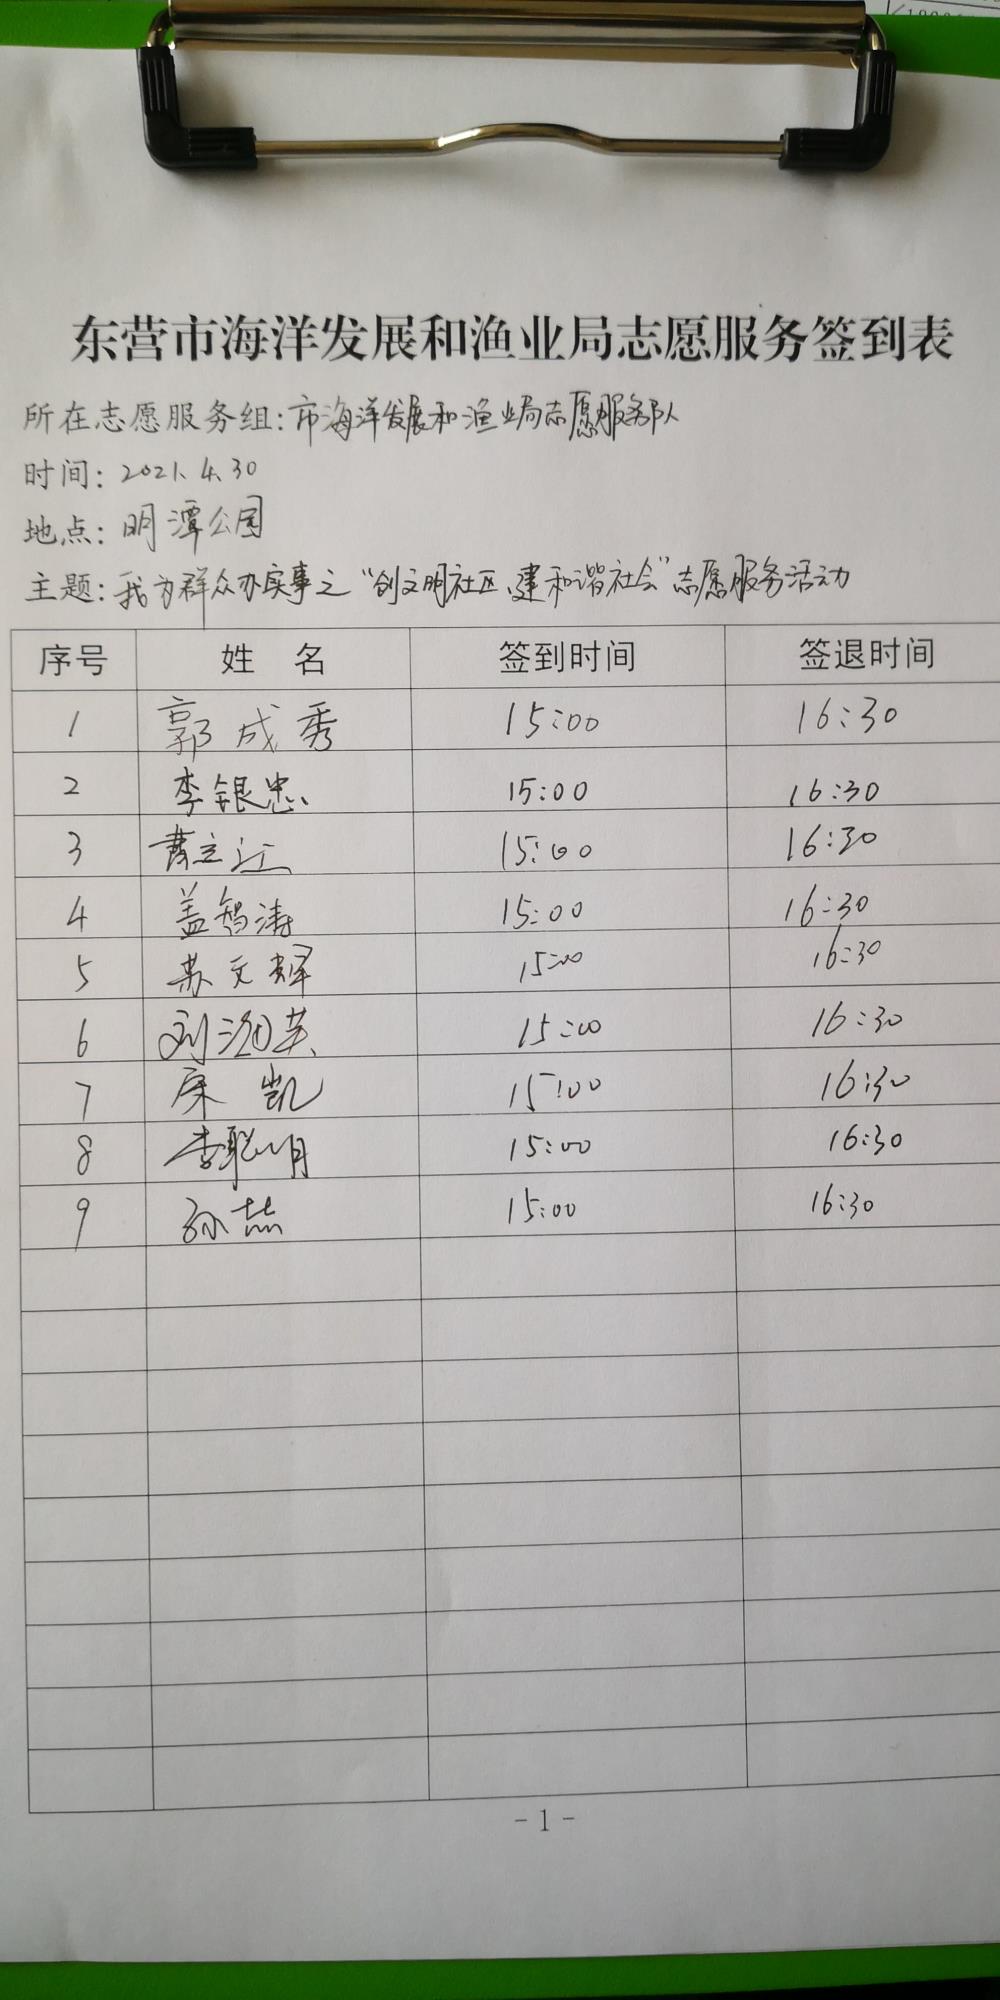 东营市海洋发展和渔业局志愿服务签到表
所在志愿服务组:市海洋发展和渔业局志愿服务队
时间:2021.4.30
地点:明潭公园
主题:我为群众办实事之“创文明社区、建和谐社会”志愿服务活动
序号 姓 名 签到时间 签退时间
1 郭成秀 15:00 16:30
2 李银忠 15:00 16:30
3 15:00 16:30
4 盖智涛 15:00 16:30
5 苏文辉 15:00 16:30
6 刘 英 15:00 16:30
7 凯 15:00 16:30
8 李聪明 15:00 16:30
9 孙喆 15:00 16:30
- 1 -